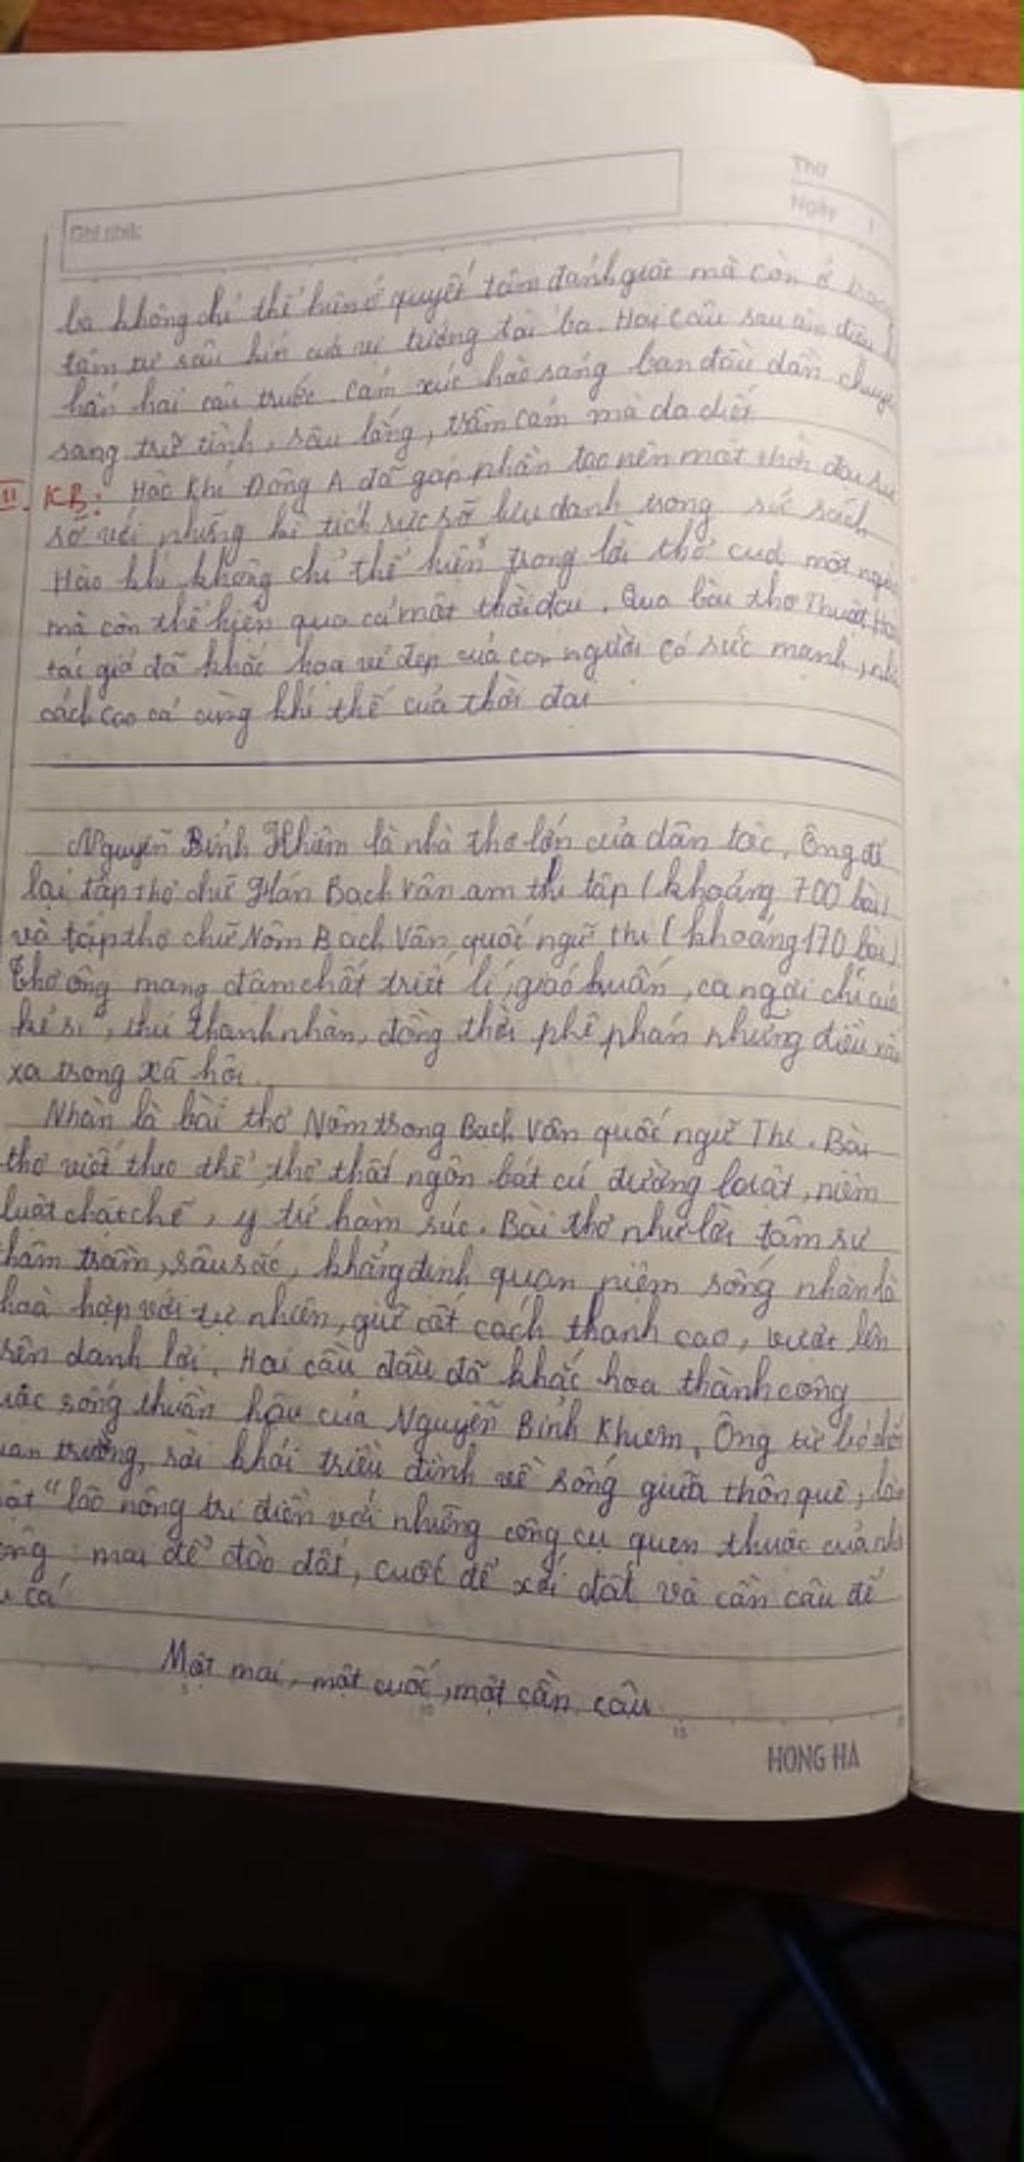 Thứ
Ngày /
Ghi nhớ:
ba không chỉ thể hiện ở quyết tâm đánh giặc mà còn ở
tâm tư sâu kín của vị tướng tài ba. Hai câu sau âm điệu
hẳn hai câu trước. Cảm xúc hào sảng ban đầu dần chuyển
sang trữ tình, sâu lắng, trầm cảm mà da diết
II. KB: Hào khí Đông A đã góp phần tạo nên một thời đại
sỡ với những kì tích rực rỡ lưu danh trong sử sách
Hào khí không chỉ thể hiện trong lời thơ của một người
mà còn thể hiện qua cả một thời đại. Qua bài thơ Thuật
tác giả đã khắc hoạ vẻ đẹp của con người có sức mạnh,
cách cao cả cùng khí thế của thời đại
Nguyễn Bỉnh Khiêm là nhà thơ lớn của dân tộc. Ông để
lại tập thơ chữ Hán Bạch Vân am thi tập (khoảng 700 bài)
và tập thơ chữ Nôm Bạch Vân quốc ngữ thi (khoảng 170 bài).
Thơ ông mang đậm chất triết lí, giáo huấn, ca ngợi chí của
kẻ sĩ, thú thanh nhàn, đồng thời phê phán những điều xấu
xa trong xã hội.
Nhàn là bài thơ Nôm trong Bạch Vân quốc ngữ Thi. Bài
thơ viết theo thể thơ thất ngôn bát cú đường luật, niêm
luật chặt chẽ, ý tứ hàm súc. Bài thơ như lời tâm sự
thâm trầm, sâu sắc, khẳng định quan niệm sống nhàn là
hoà hợp với tự nhiên, giữ cốt cách thanh cao, vượt lên
trên danh lợi. Hai câu đầu đã khắc hoạ thành công
cuộc sống thuần hậu của Nguyễn Bỉnh Khiêm. Ông từ bỏ
quan trường, rời khỏi triều đình về sống giữa thôn quê, làm
một "lão nông tri điền với những công cụ quen thuộc của nhà
nông: mai để đào đất, cuốc để xới đất và cần câu để
câu cá
Một mai, một cuốc, một cần câu
HONG HA